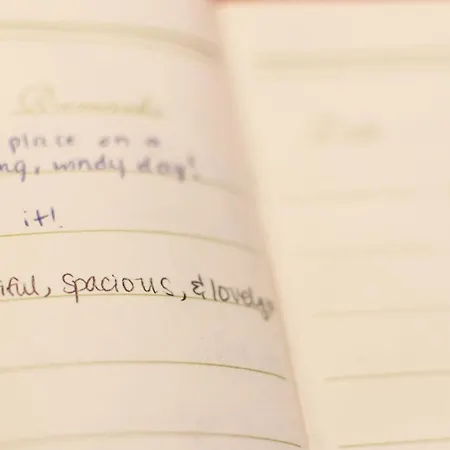 Remarks
place on a
ng, windy day!
it!
iful, spacious, & lovely